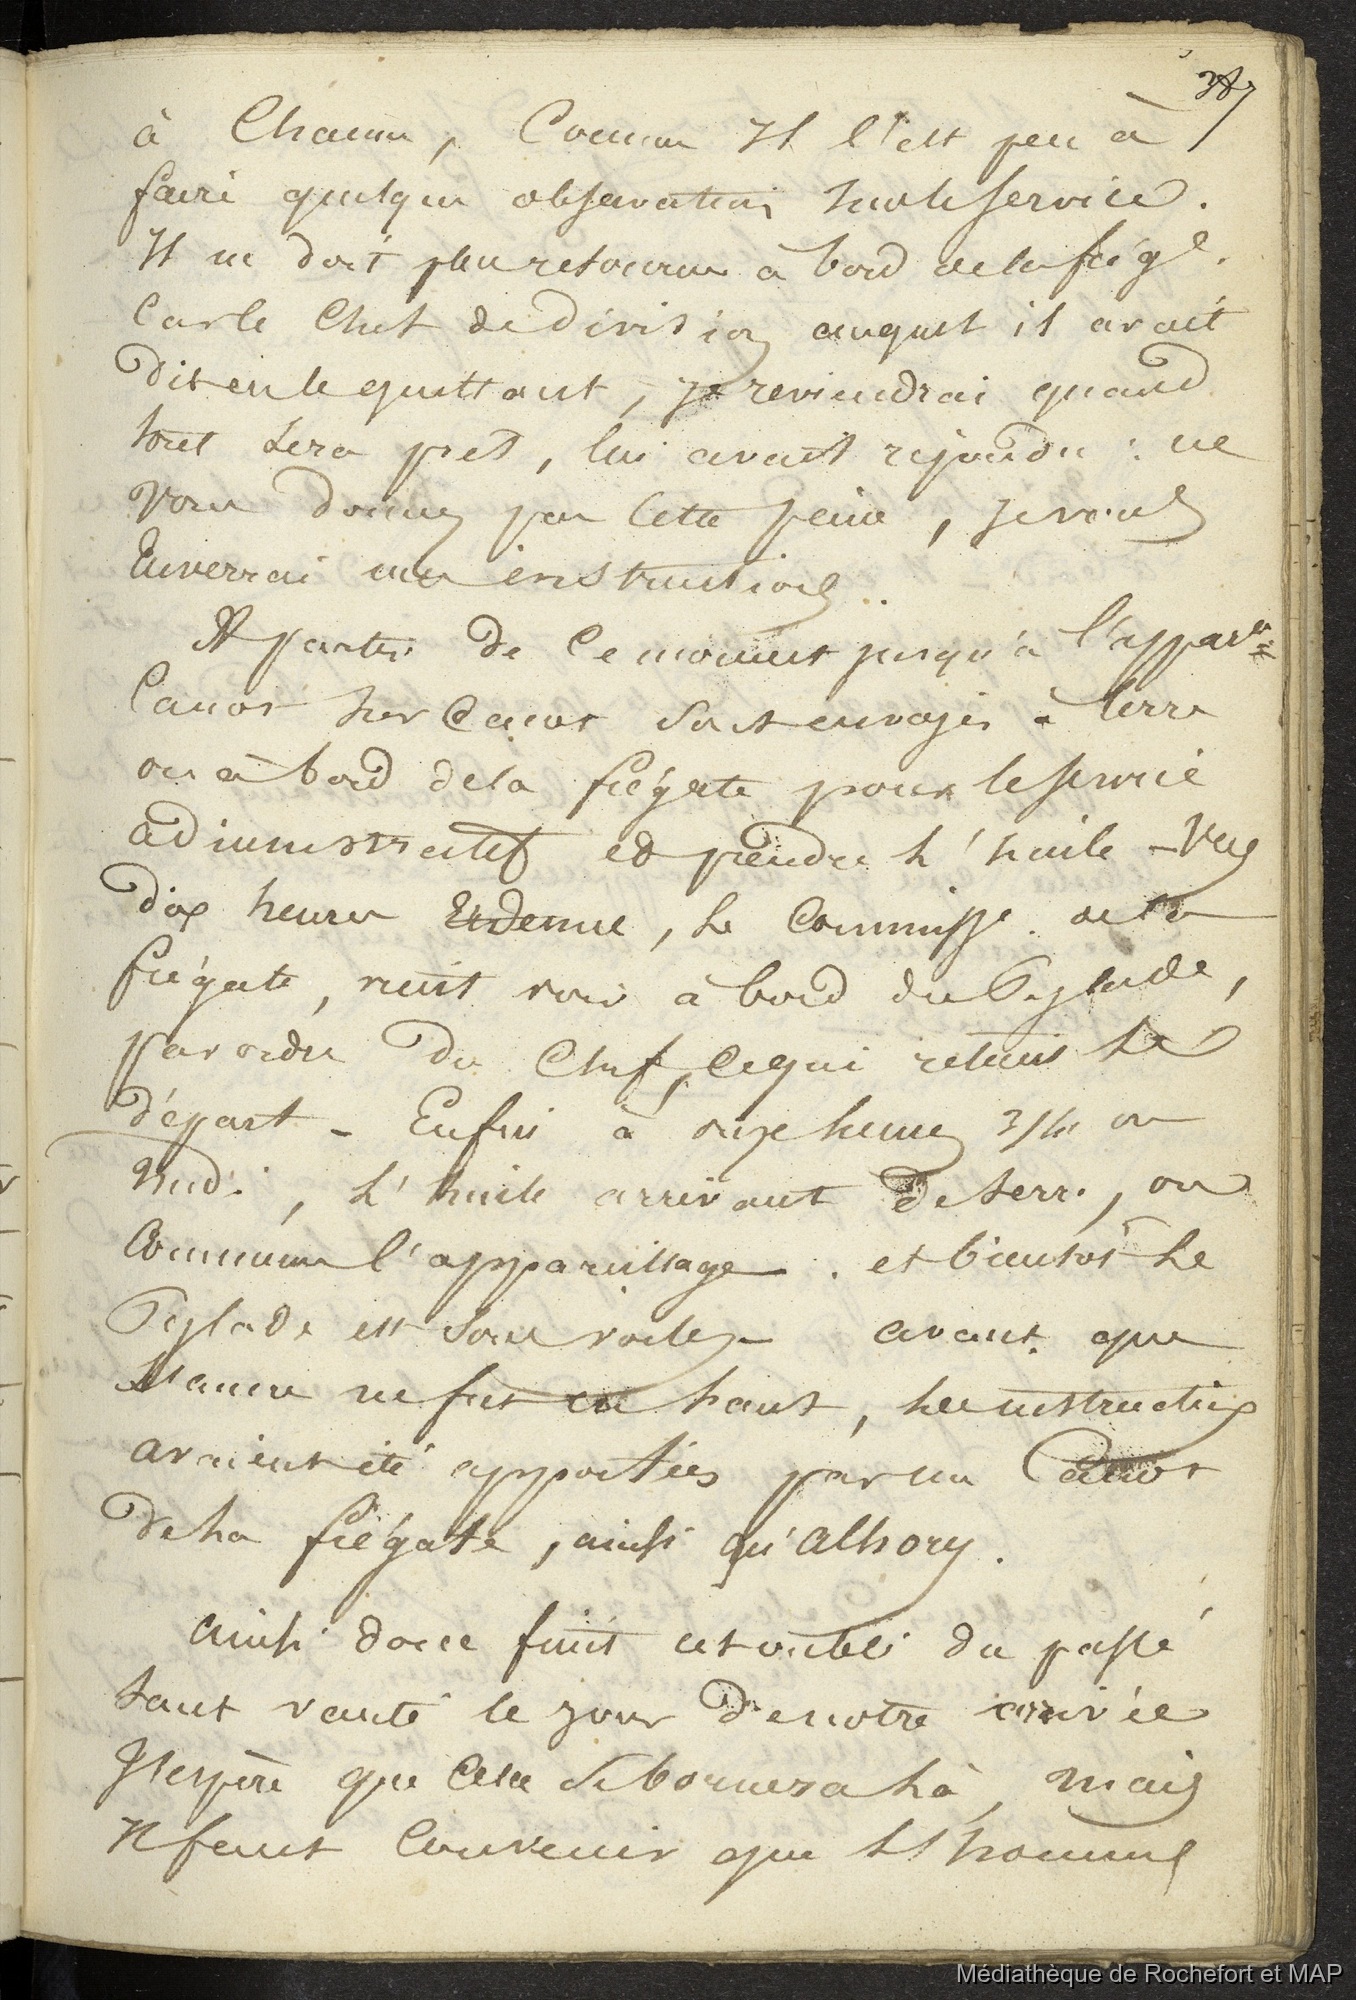 387
à Chacun, Comme Il l'est peu à
faire quelque observation sur le service.
Il ne doit plus retourner à bord de la frég.
Car le Chef de division auquel il avait
dit en le quittant, je reviendrai quand
tout sera prêt, lui avait répondu : ne
vous donnez pas Cette peine, je vous
Enverrai vos instructions.
A partir de Ce moment jusqu'à l'appar
Canot sur Canot sont envoyés à terre
ou à bord de la frégate pour le service
administratif et prendre l'huile - Vers
dix heures Et demie, le Commiss. de la
frégate, vient voir à bord du Pylade,
par ordre du Chef, Ce qui retient le
départ - Enfin à onze heures 3/4 ou
midi, l'huile arrivant de terre, on
Commence l'appareillage. et bientôt le
Pylade est sous voiles - avant que
l'ancre ne fut en haut, les instructions
avaient été apportées par un Canot
de la frégate, ainsi qu'
ainsi donc finit cet oubli du passé
tant vanté le jour de notre arrivée
J'espère que Cela se bornera là, mais
Il faut Convenir que les hommes
Médiathèque de Rochefort et MAP